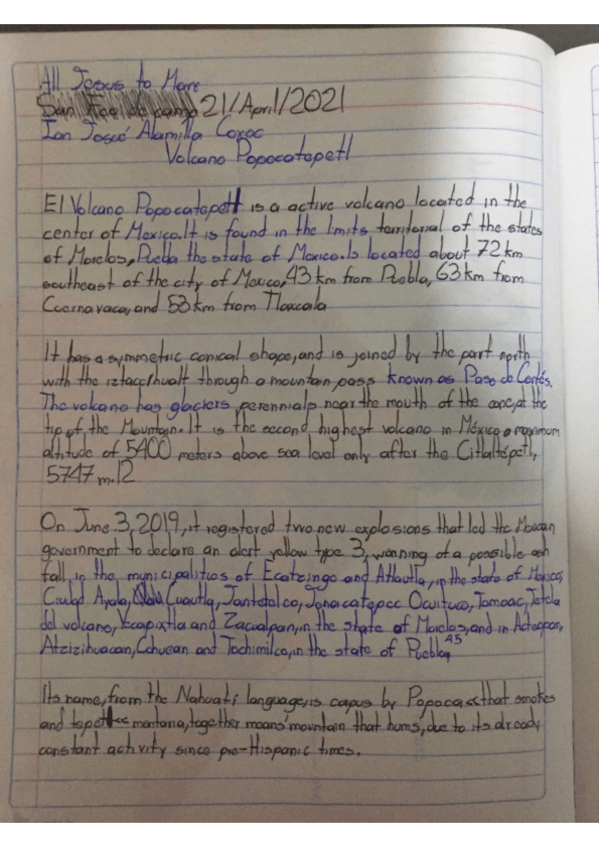 All Jesus to Mary
21/April/2021
Ian Josué Alamilla
Volcano Popocatepetl
El Volcano Popocatepetl is a active volcano located in the
center of Mexico.It is found in the limits territorial of the states
of Morelos, Puebla the state of Mexico.Is located about 72 km
southeast of the city of Mexico, 43 km from Puebla, 63 km from
Cuernavaca, and 53 km from Tlaxcala
It has a symmetric conical shape, and is joined by the part north
with the through a mountain pass known as Paso de Cortés.
The volcano has glaciers perennials near the mouth of the cone, at the
tip of, the Mountain. It is the second highest volcano in México a maximum
altitude of 5400 meters above sea level only after the Citlaltépetl,
5747 m.12
On June 3, 2019, it registered two new explosions that led the Mexican
government to declare an alert yellow type 3, warning of a possible ash
fall, in the municipalities of Ecatzingo and Atlautla, in the state of Mexico,
Ciudad Ayala, Cuautla, Jantetelco, Jonacatepec Ocuituco, Temoac, Tetela
del volcano, Yecapixtla and Zacualpan, in the state of Morelos, and in Acteopan,
Atzizihuacan, Cohuecan and Tochimilco, in the state of Puebla 45
Its name, from the Nahuatl language, is by Popoca << that smokes
and montana, together means "mountain that hums", due to its already
constant activity since pre-Hispanic times.